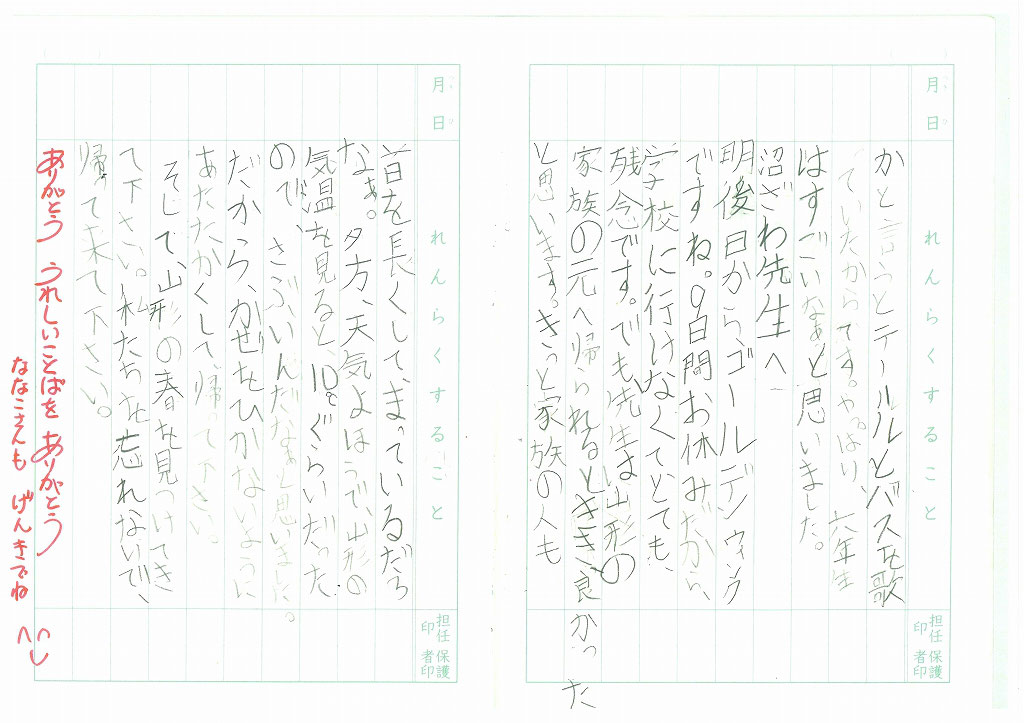 月 日
れんらくすること
担任印
保護者印
かと言うとテールルとバスを歌
ていたからです。やっぱり、六年生
はすごいなぁと思いました。
沼ざわ先生へ
明後日からゴールデンウィク
ですね。9日間お休みだから、
学校に行けなくてとても、
残念です。でも先生は山形の
家族の元へ帰られるときき、良かった
と思います。きっと家族の人も
月 日
れんらくすること
担任印
保護者印
首を長くして、まっているだろ
なぁ。夕方、天気よほうで、山形の
気温を見ると、10°ぐらいだった
ので、さぶいんだなぁと思いました。
だから、かぜをひかないように
あたたかくして、帰って下さい。
そして、山形の春を見つけてき
て下さい。私たちを忘れないで、
帰って来て下さい。
ありがとう うれしいことばを ありがとう
ななこさんも げんきでね